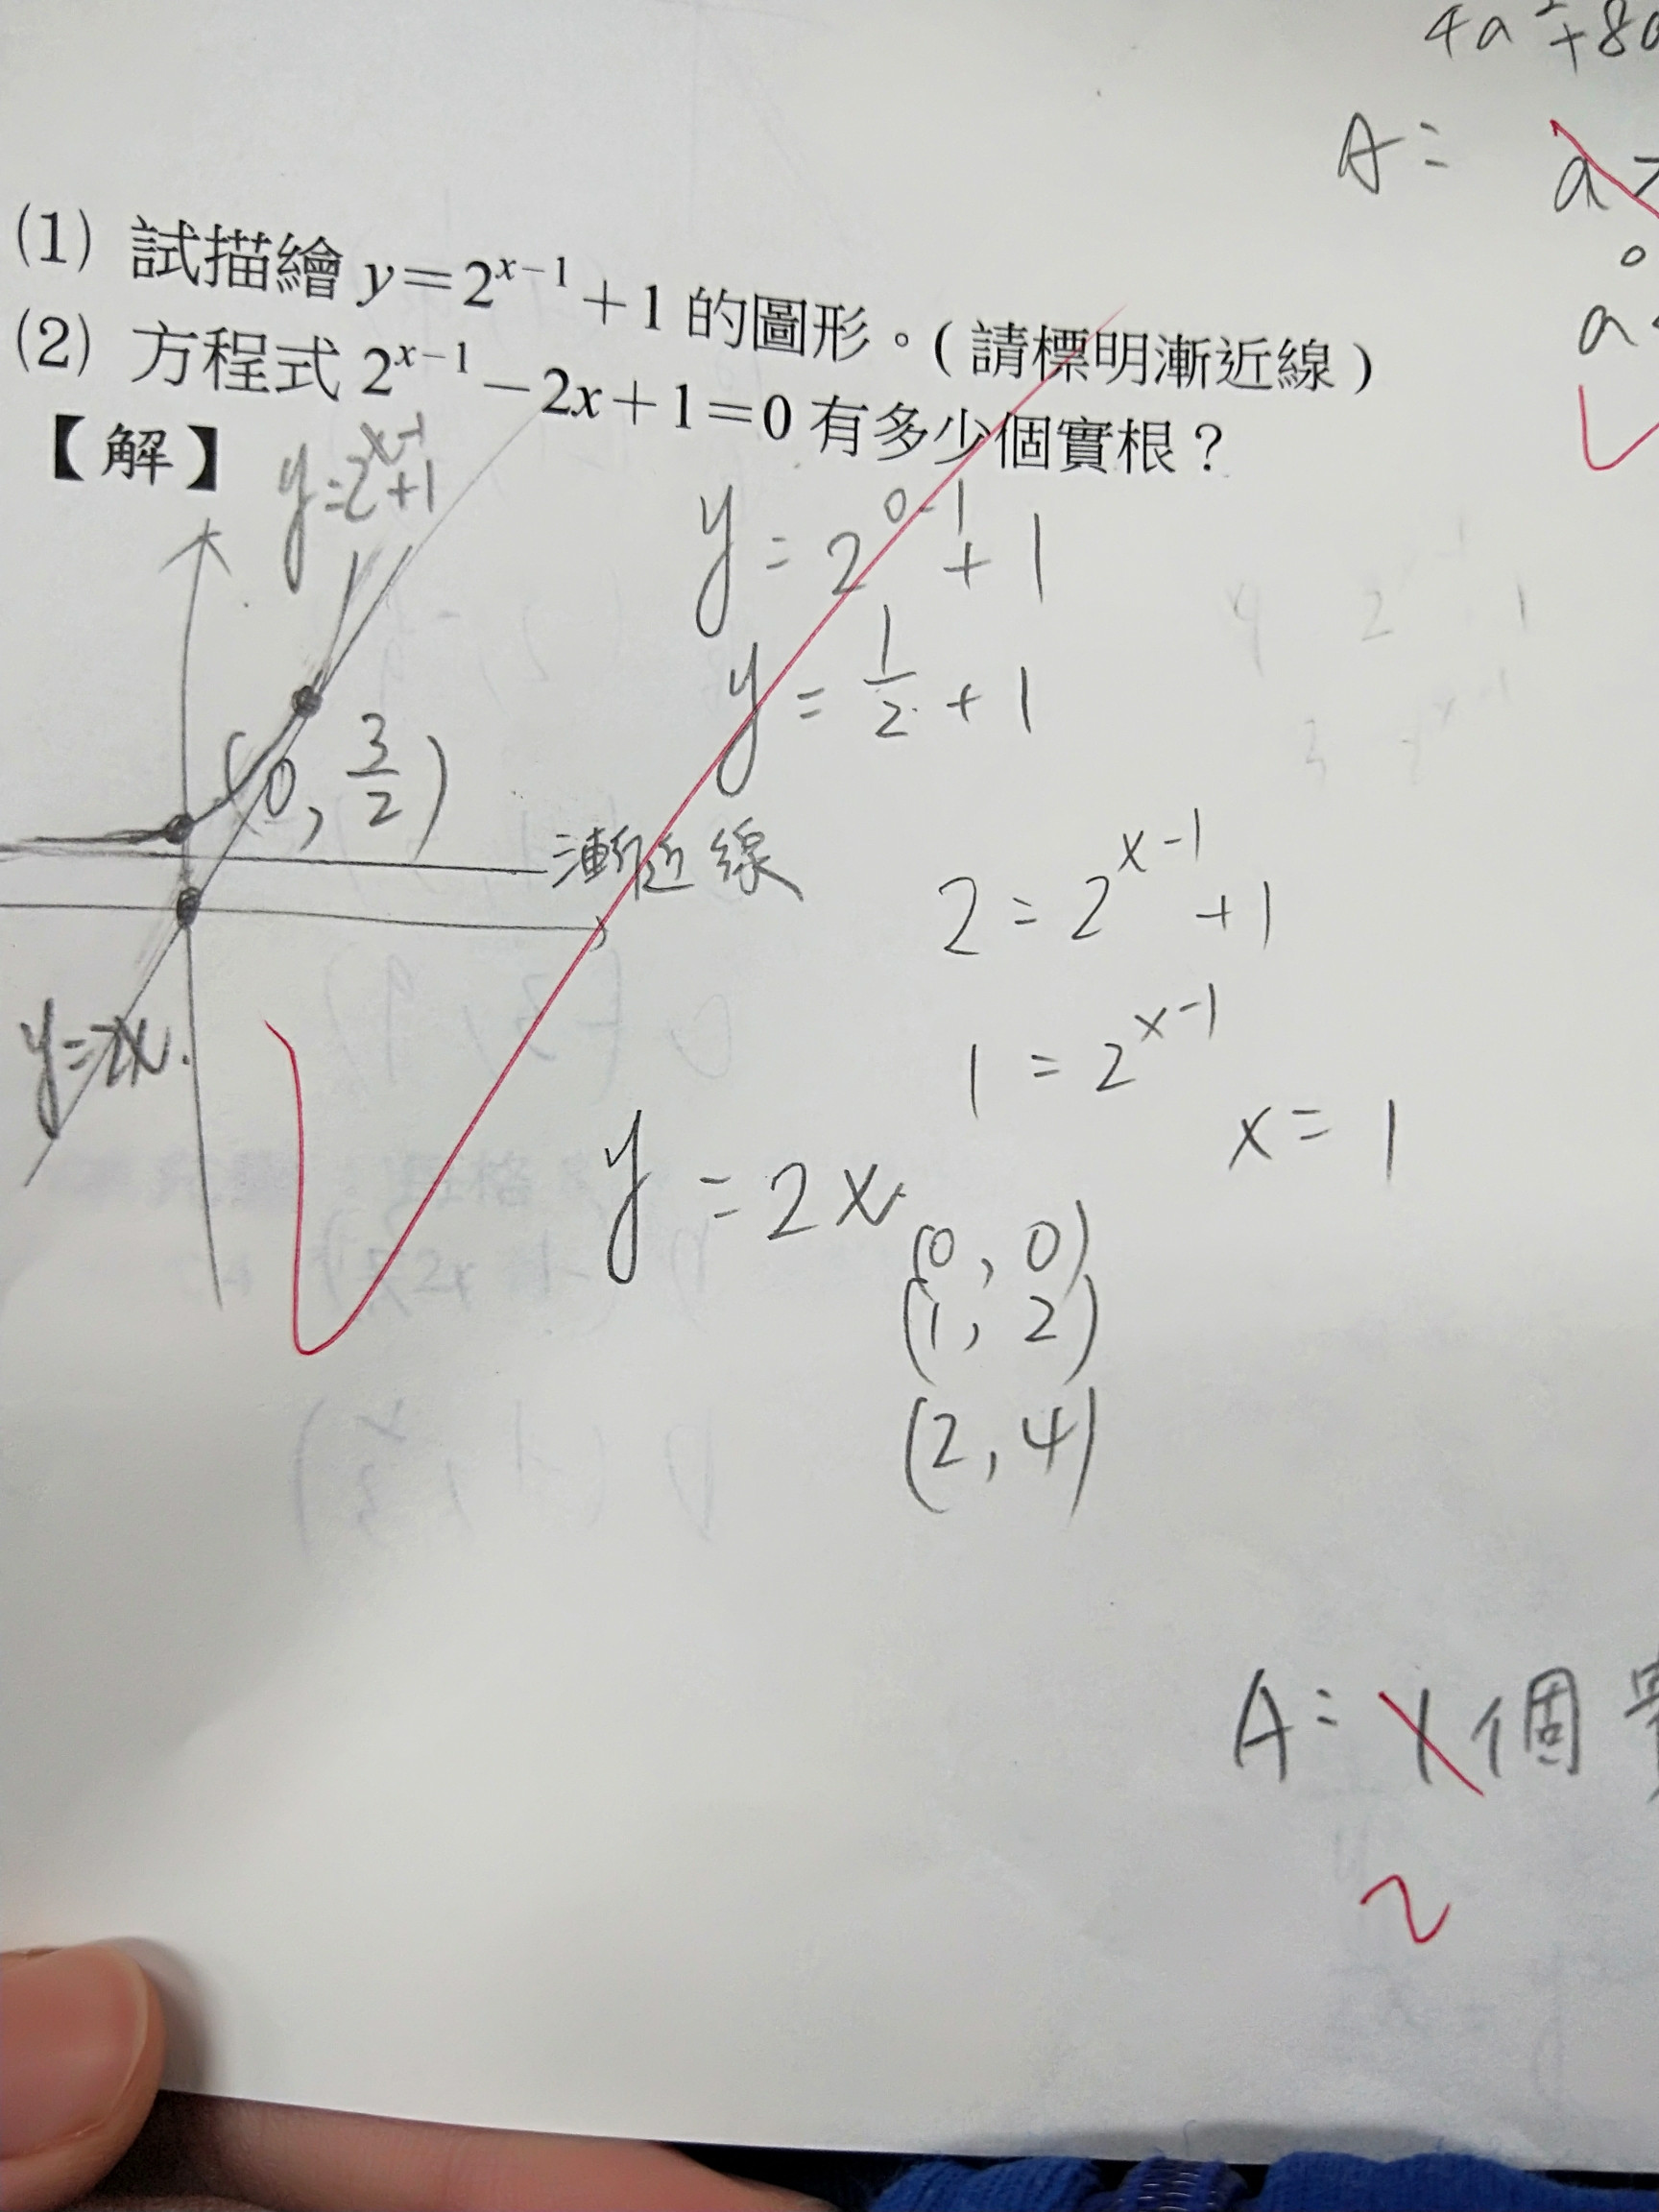 4a²+8a
A= a>
0
a<
(1) 試描繪 y=2^{x-1}+1 的圖形。(請標明漸近線)
(2) 方程式 2^{x-1}-2x+1=0 有多少個實根?
【解】
y=2^{x-1}+1
y=2^{0-1}+1
y=\frac{1}{2}+1
(0, \frac{3}{2})
漸近線
2=2^{x-1}+1
1=2^{x-1}
x=1
y=2x
y=2x
(0, 0)
(1, 2)
(2, 4)
A= 1個實
2